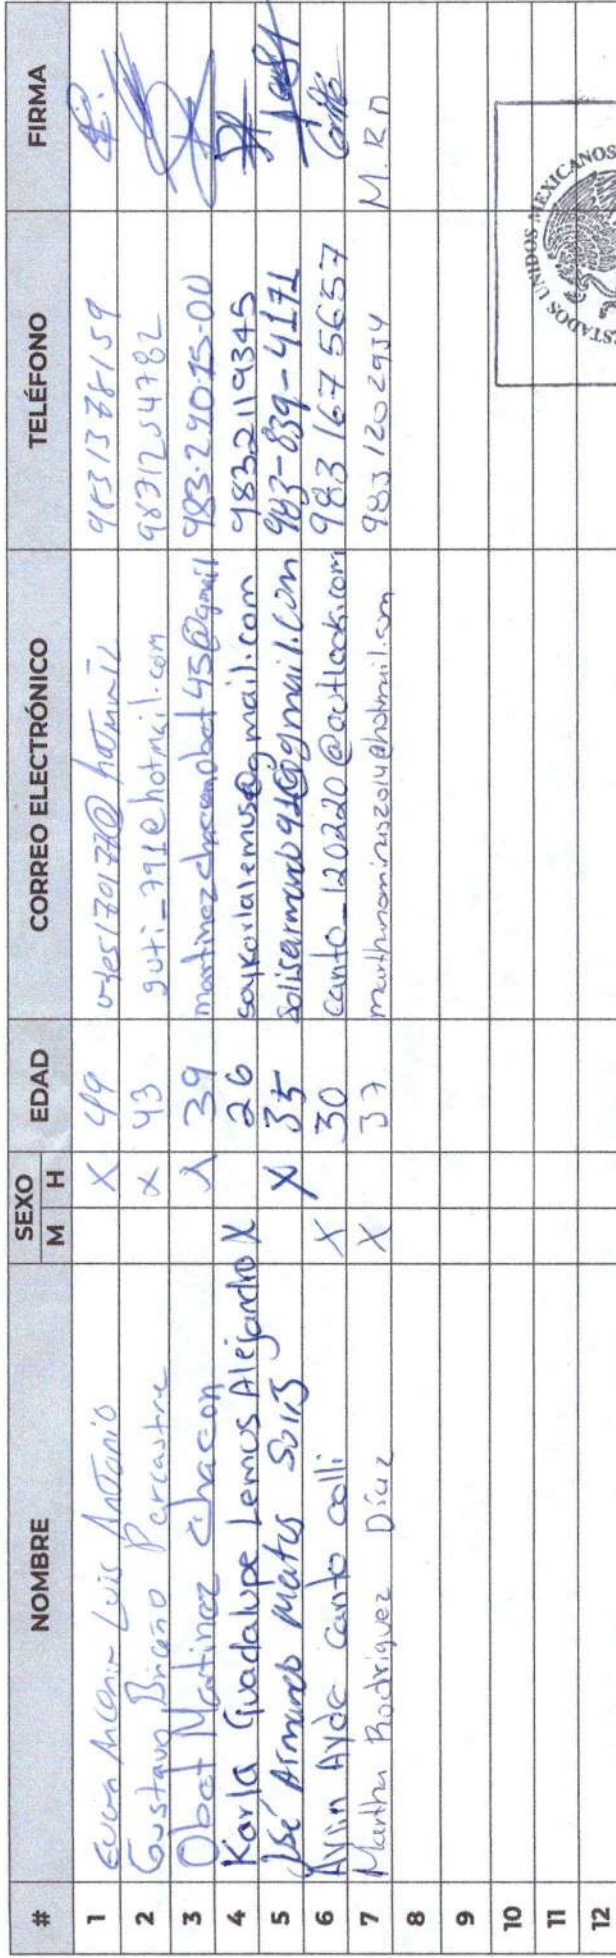 # NOMBRE SEXO M H EDAD CORREO ELECTRÓNICO TELÉFONO FIRMA
1 Luis Antonio X 49 9831378159
2 Gustavo Briceño X 43 guti_791@hotmail.com 9871254782
3 Obet Martinez Chacon X 39 martinezchaconobet45@gmail 983-290-15-00
4 Karla Guadalupe Lemus Alejandro X 26 soykarlalemus@gmail.com 9832119345
5 José Armando Matus Solis X 35 solisarmando91@gmail.com 983-839-4171
6 Aylin Ayde Canto colli X 30 canto_120220@outlook.com 983 167 5657 Canto
7 Martha Rodriguez Díaz X 37 983 1202934 M.R.D
8
9
10
11
12
ESTADOS UNIDOS MEXICANOS